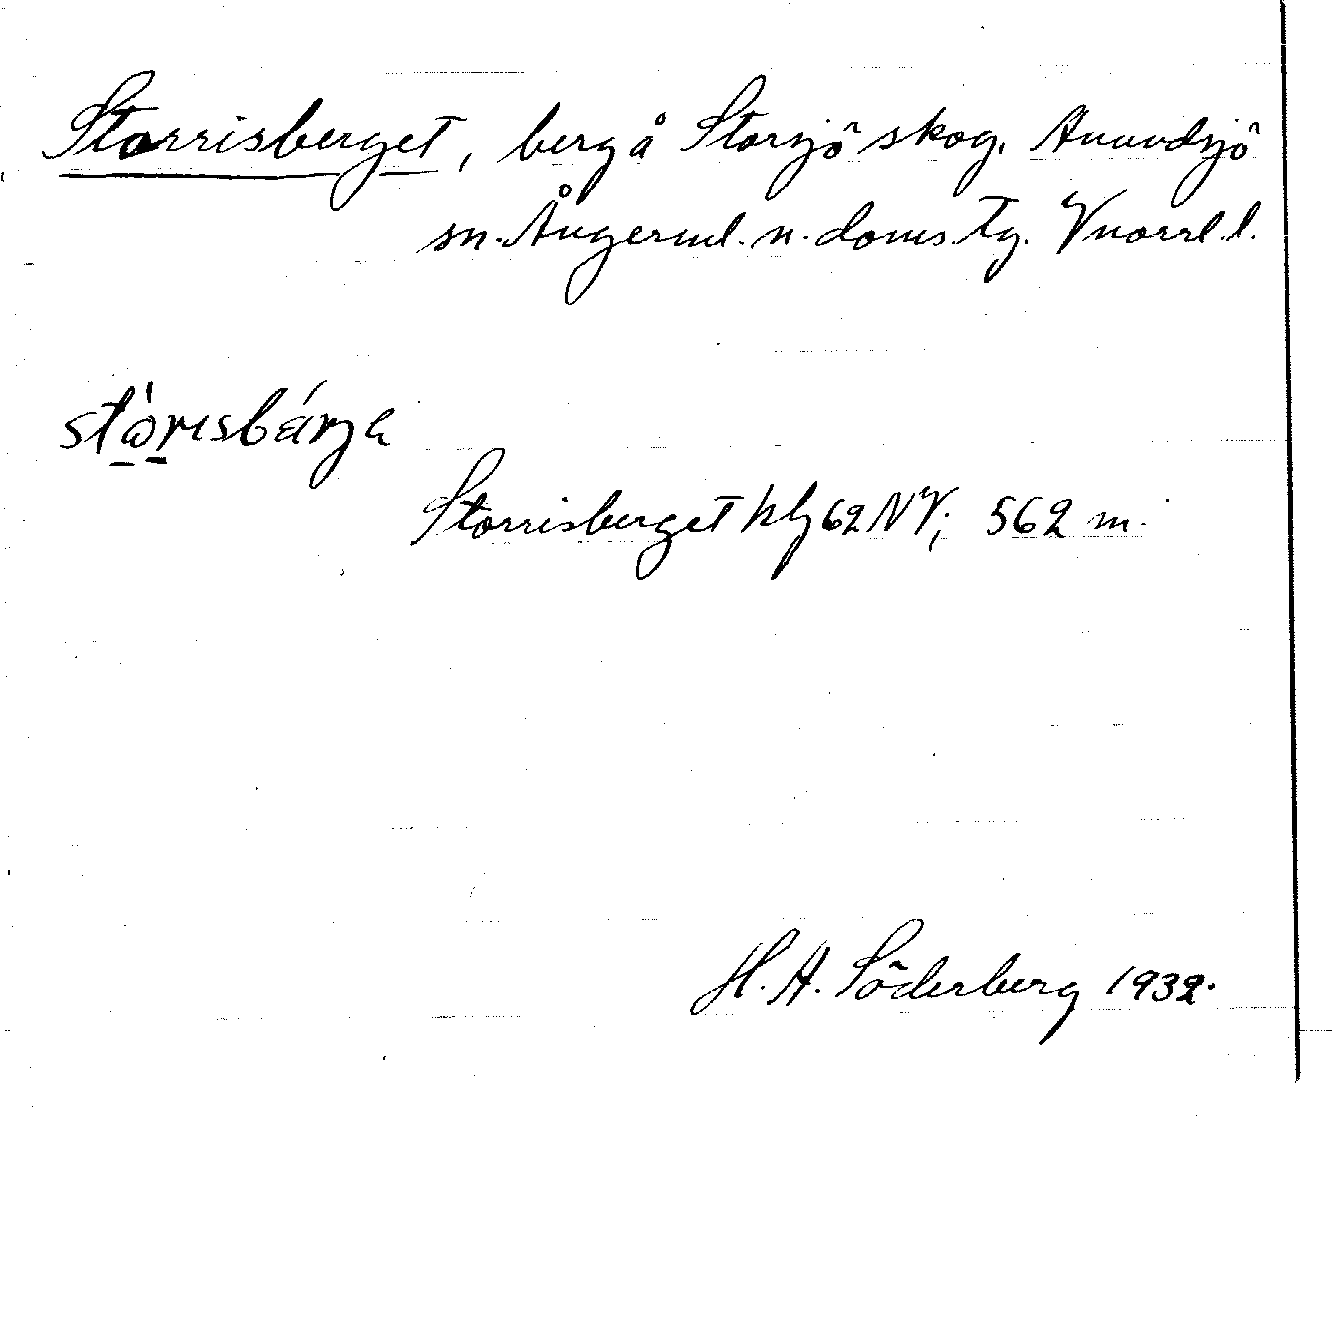 Storrisberget, berg å Storsjö skog. Anundsjö
sn. Ångerml. n. doms. Tg. Vnorrl. l.
Storrisberget hbg 62 NV; 562 m.
H. A. Söderberg 1932.